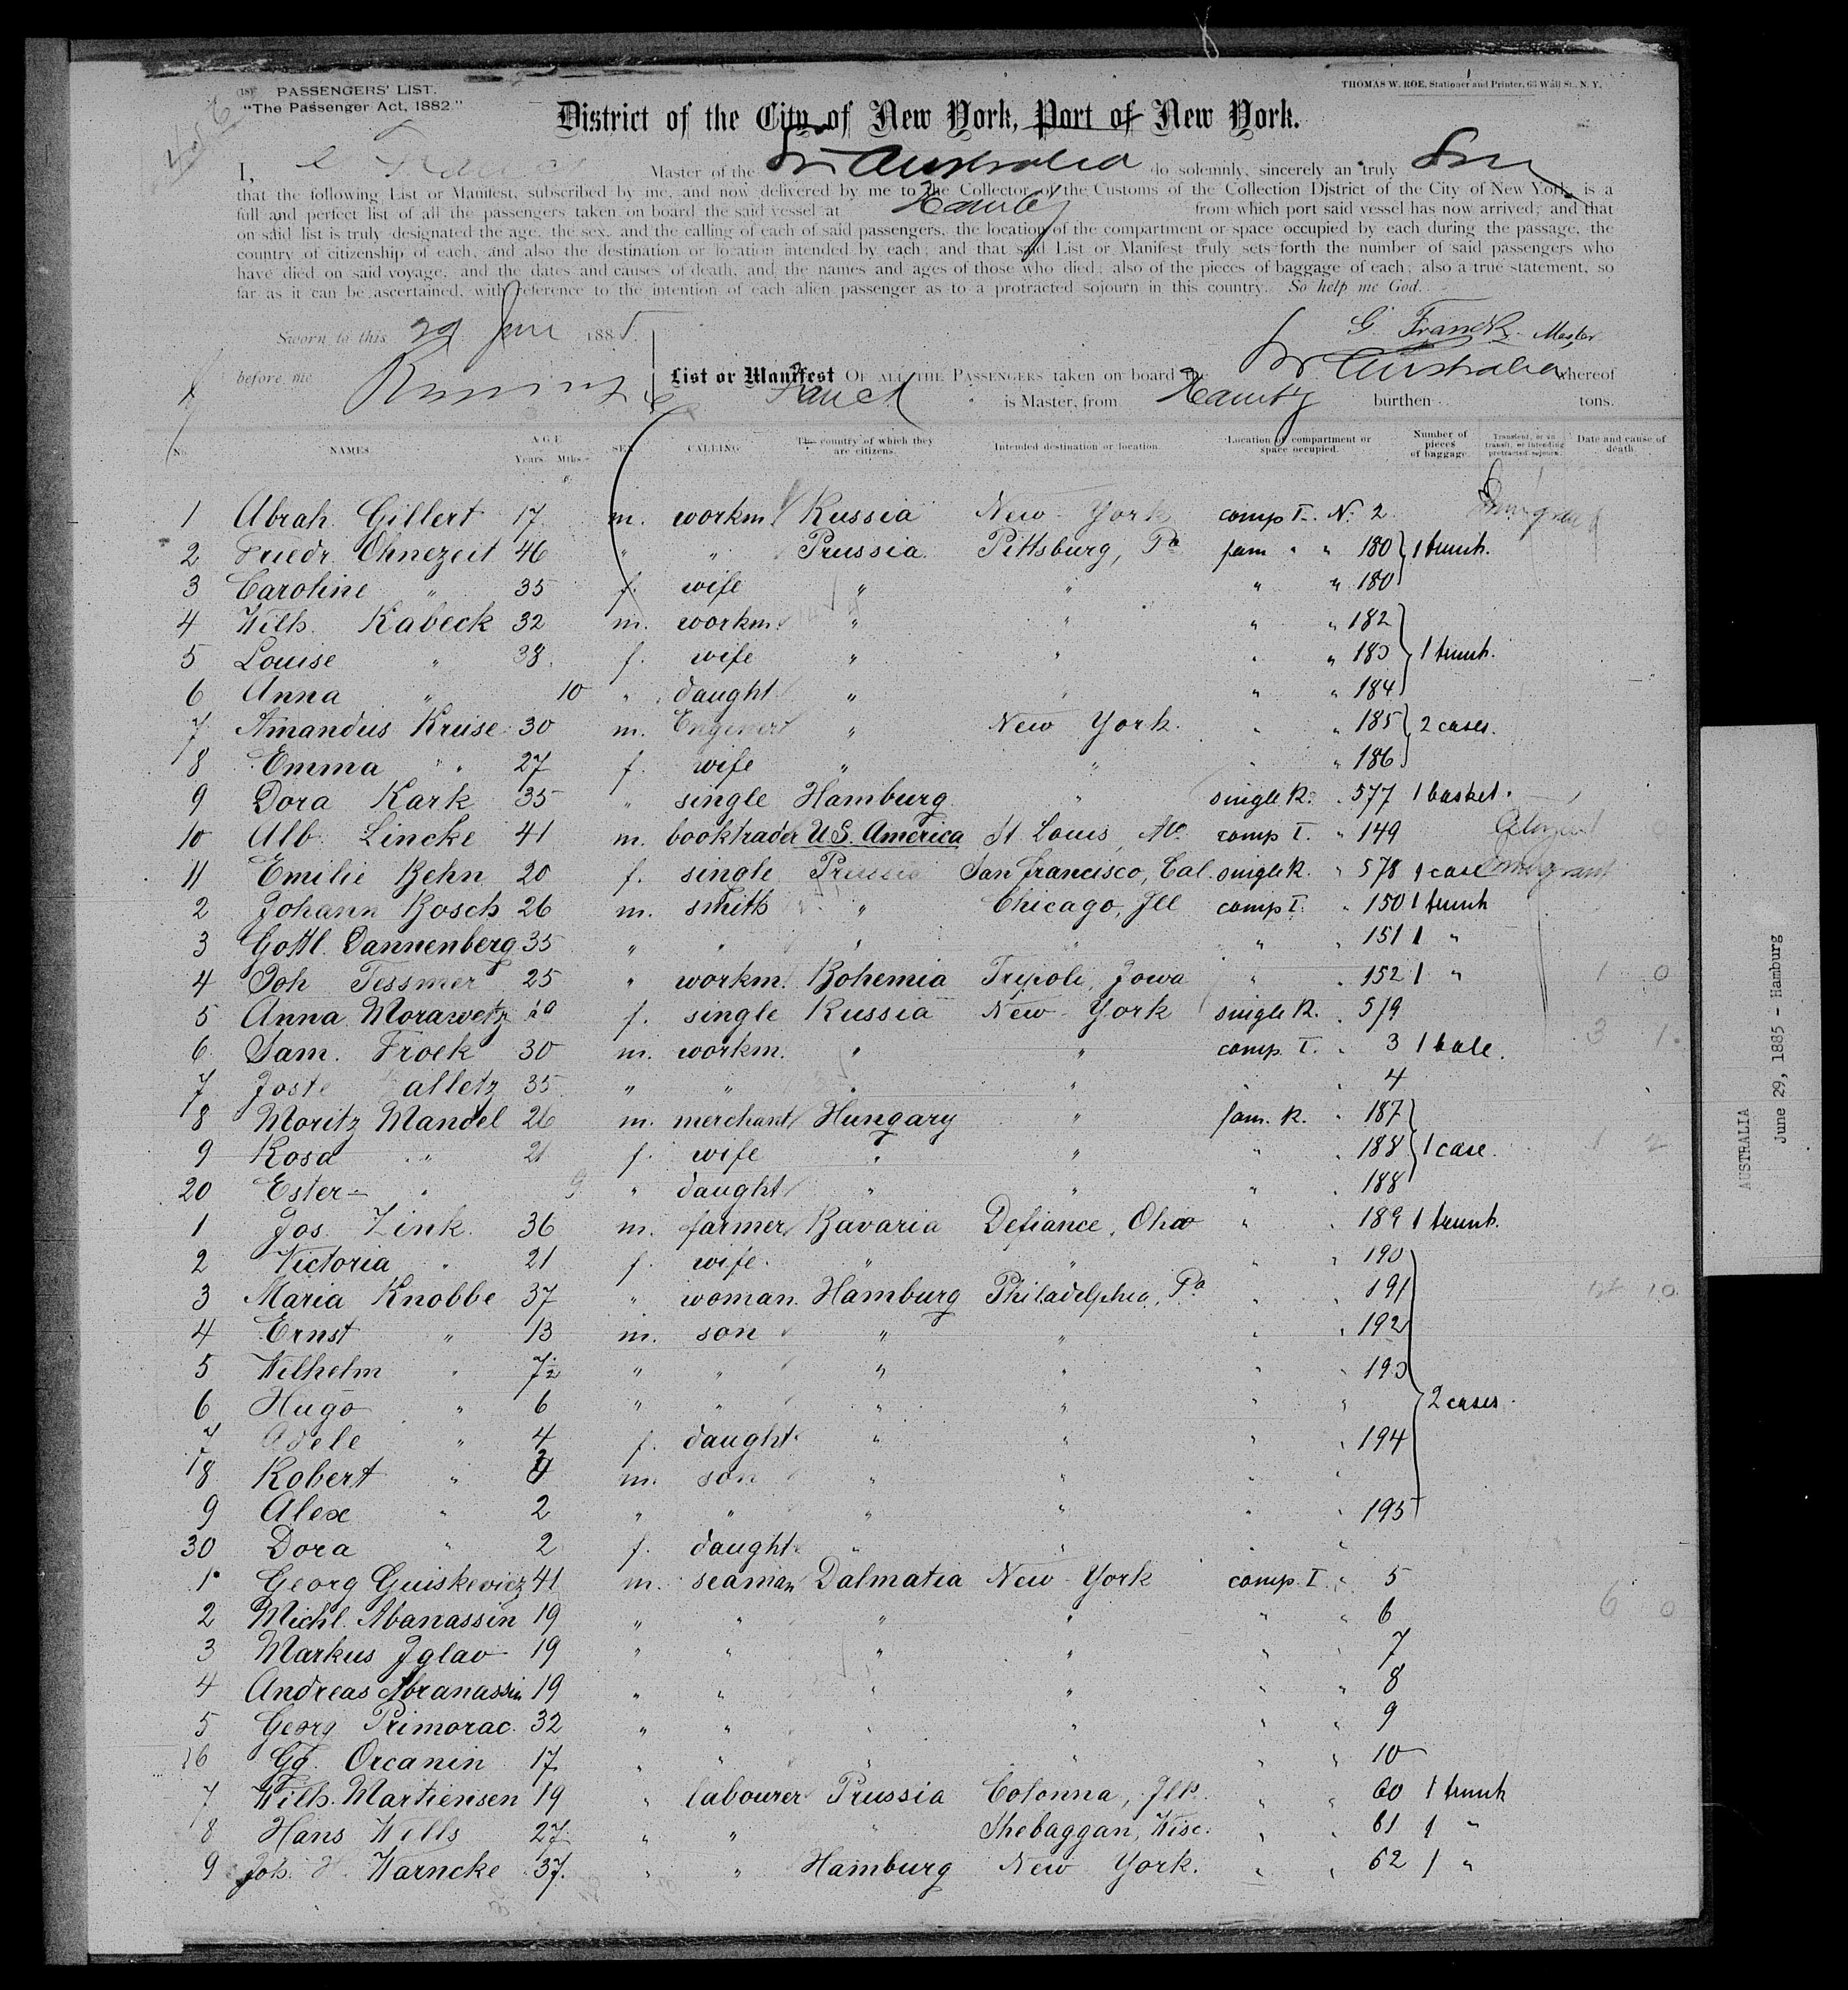 (18) PASSENGERS' LIST.
"The Passenger Act, 1882"
THOMAS W. ROE, Stationer and Printer, 63 Wall St., N. Y.
District of the City of New York, Port of New York.
I, G Franck Master of the Str Australia do solemnly, sincerely an truly
that the following List or Manifest, subscribed by me, and now delivered by me to the Collector of the Customs of the Collection District of the City of New York, is a
full and perfect list of all the passengers taken on board the said vessel at Hamburg from which port said vessel has now arrived; and that
on said list is truly designated the age, the sex, and the calling of each of said passengers, the location of the compartment or space occupied by each during the passage, the
country of citizenship of each, and also the destination or location intended by each; and that said List or Manifest truly sets forth the number of said passengers who
have died on said voyage, and the dates and causes of death, and the names and ages of those who died; also of the pieces of baggage of each; also a true statement, so
far as it can be ascertained, with reference to the intention of each alien passenger as to a protracted sojourn in this country. So help me God.
Sworn to this 29 June 1885.
G. Franck Master
before me
List or Manifest OF ALL THE PASSENGERS taken on board the Str Australia whereof
Franck is Master, from Hamburg burthen tons.
No. NAMES. AGE Years. Mths. SEX. CALLING. The country of which they are citizens. Intended destination or location. Location of compartment or space occupied. Number of pieces of baggage. Transient, or in transit, or intending protracted sojourn. Date and cause of death.
1 Abrah. Gillert 17 m. workm. Russia New-York comp I. N. 2
2 Friedr. Ohnezeit 46 " " Prussia Pittsburg, Pa fam " " 180 1 trunk.
3 Caroline " 35 f. wife " " " " 180
4 Wilh. Kabeck 32 m. workm. " " " " 182
5 Louise " 38 f. wife " " " " 183 1 trunk.
6 Anna " 10 " daught " " " " 184
7 Amandus Kruse 30 m. Engineer " New York. " " 185 2 cases.
8 Emma " 27 f. wife " " " " 186
9 Dora Kark 35 " single Hamburg " single R. " 577 1 basket.
10 Alb. Lincke 41 m. booktrader U.S. America St. Louis, Mo. comp I. " 149 Citizen
11 Emilie Behn 20 f. single Prussia San francisco, Cal. single R. " 578 1 case Emigrant
2 Johann Bosch 26 m. smith " Chicago, Ill comp I. " 150 1 trunk
3 Gottl. Dannenberg 35 " " " " " " 151 1 "
4 Joh Tessmer 25 " workm. Bohemia Tripoli, Jowa " " 152 1 "
5 Anna Morawetz f. single Russia New-York single R. " 579
6 Sam. Froek 30 m. workm. " " comp. I. " 3 1 bale.
7 35 " " " " " " 4
8 Moritz Mandel 26 m. merchant Hungary " fam. R. " 187
9 Rosa " 21 f. wife " " " " 188 1 case.
20 Ester " 9 " daught " " " " 188
1 Jos. Zink 36 m. farmer Bavaria Defiance, Ohio " " 189 1 trunk.
2 Victoria " 21 f. wife. " " " " 190
3 Maria Knobbe 37 " woman. Hamburg Philadelphia, Pa " " 191
4 Ernst " 13 m. son " " " " 192
5 Wilhelm " 7½ " " " " " " 193
6 Hugo " 6 " " " " " " 2 cases.
7 Adele " 4 f. daught. " " " " 194
8 Robert " m. son " " " "
9 Alex " 2 " " " " " " 195
30 Dora " 2 f. daught. " " " "
1 Georg Guiskewicz 41 m. seaman Dalmatia New-York comp. I. " 5
2 Michl. Abanassin 19 " " " " " " 6
3 Markus Jglav 19 " " " " " " 7
4 Andreas Abranassin 19 " " " " " " 8
5 Georg Primorac. 32 " " " " " " 9
6 Gg. Orcanin 17 " " " " " " 10
7 Wilh. Martiensen 19 " labourer Prussia Colonna, Ills. " " 60 1 trunk
8 Hans Wells 27 " " " Shebaggan, Wisc. " " 61 1 "
9 Joh. H. Warncke 37. " " Hamburg New York. " " 62 1 "
AUSTRALIA
June 29, 1885 - Hamburg